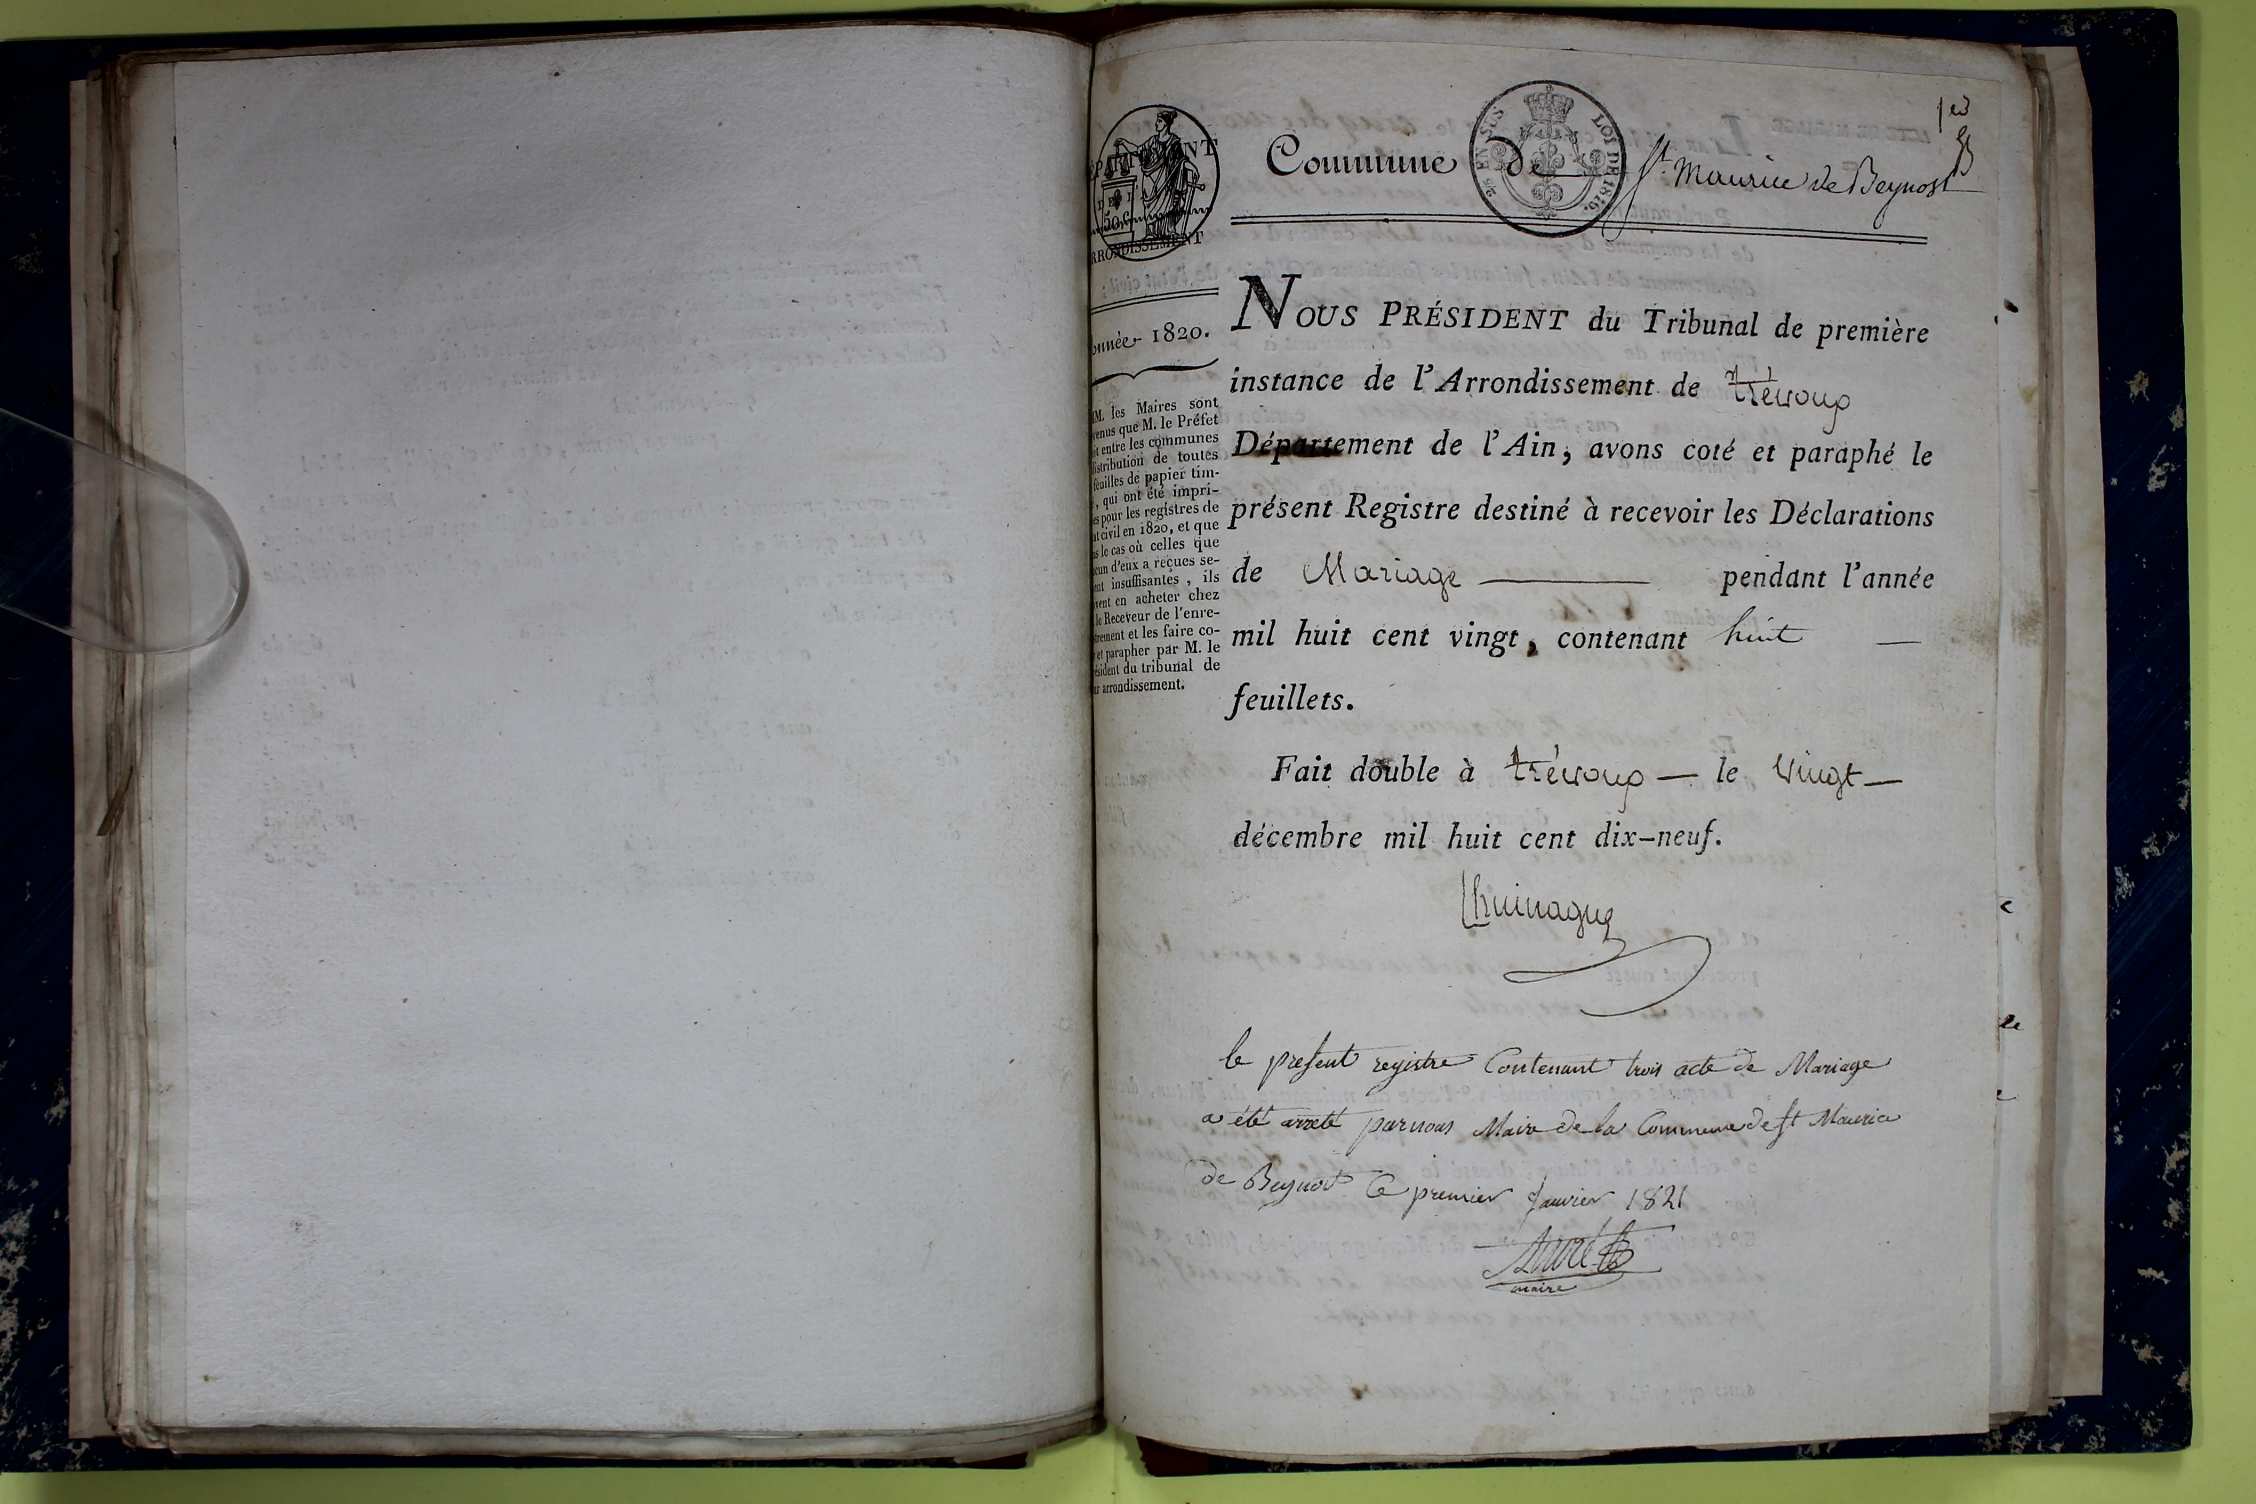 DÉPARTEMENT
DE L'
50 C.
ARRONDISSEMENT
année 1820.
MM. les Maires sont
venus que M. le Préfet
it entre les communes
distribution de toutes
feuilles de papier tim-
, qui ont été impri-
es pour les registres de
at civil en 1820, et que
s le cas où celles que
cun d'eux a reçues se-
ent insuffisantes, ils
vent en acheter chez
le Receveur de l'enre-
trement et les faire co-
r et parapher par M. le
ésident du tribunal de
ur arrondissement.
1er
Commune de St Maurice de Beynost
2/5 EN SUS LOI DE 1816.
NOUS PRÉSIDENT du Tribunal de première
instance de l'Arrondissement de trévoux
Département de l'Ain, avons coté et paraphé le
présent Registre destiné à recevoir les Déclarations
de Mariage pendant l'année
mil huit cent vingt, contenant huit
feuillets.
Fait double à trévoux le vingt
décembre mil huit cent dix-neuf.
le present registre Contenant trois acte de Mariage
a été arreté par nous Maire de la Commune de st Maurice
de Beynost Ce premier Janvier 1821
maire